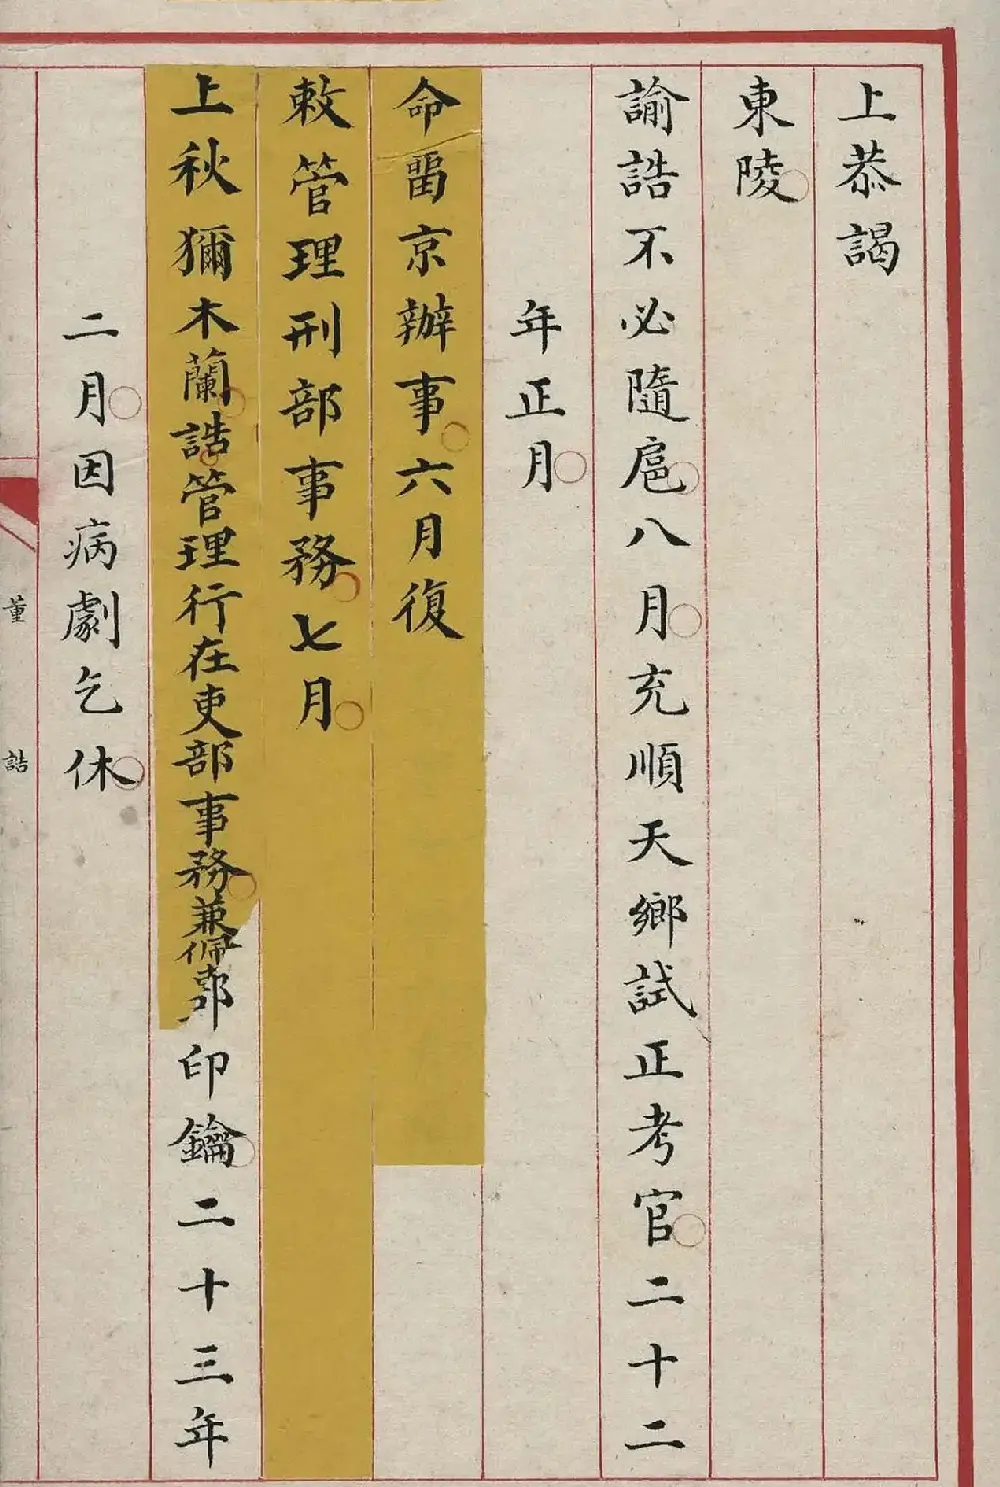 上恭謁
東陵
諭誥不必隨扈八月充順天鄉試正考官二十二
年正月
命畱京辦事六月復
敕管理刑部事務七月
上秋獮木蘭誥管理行在吏部事務兼佩部印鑰二十三年
二月因病劇乞休
董誥